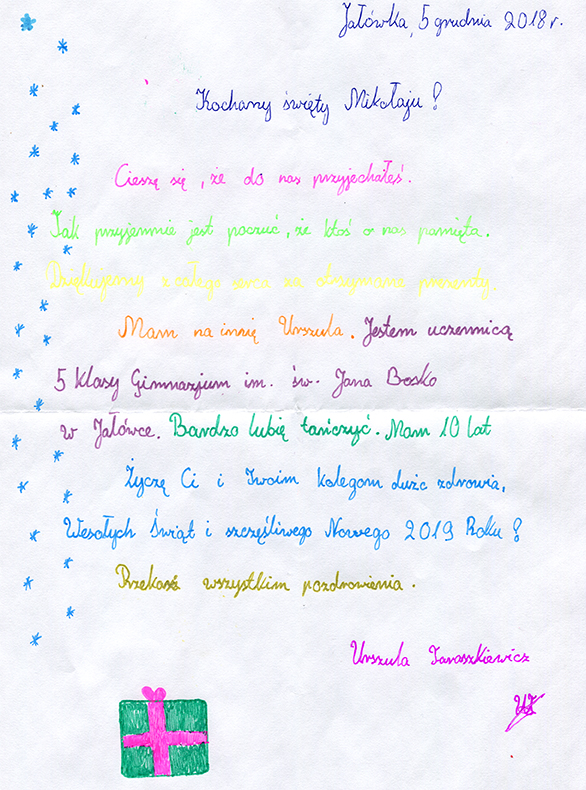 Jałówka, 5 grudnia 2018 r.
Kochany święty Mikołaju!
Cieszę się, że do nas przyjechałeś.
Jak przyjemnie jest poczuć, że ktoś o nas pamięta.
Dziękujemy z całego serca za otrzymane prezenty.
Mam na imię Urszula. Jestem uczennicą
5 klasy Gimnazjum im. św. Jana Bosko
w Jałówce. Bardzo lubię tańczyć. Mam 10 lat
Życzę Ci i Twoim kolegom dużo zdrowia,
Wesołych Świąt i szczęśliwego Nowego 2019 Roku!
wszystkim pozdrowienia.
Urszula Taraszkiewicz
UT